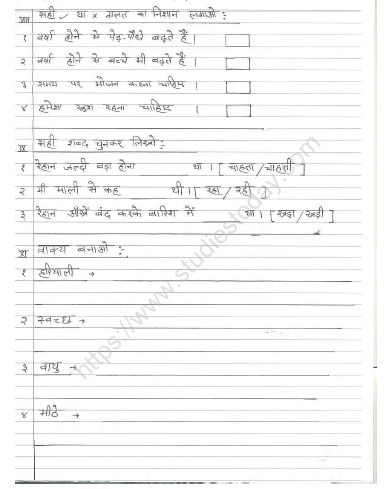 VIII सही ✓ या x गलत का निशान लगाओ :-
१ वर्षा होने से पेड़-पौधे बढ़ते हैं।
२ वर्षा होने से बच्चे भी बढ़ते हैं।
३ समय पर भोजन करना चाहिए ।
४ हमेशा खुश रहना चाहिए ।
IX सही शब्द चुनकर लिखो :-
१ रेहान जल्दी बड़ा होना ______ था । [ चाहता / चाहती ]
२ माँ माली से कह ______ थी । [ रहा / रही ]
३ रेहान आँखें बंद करके बारिश में ______ था । [ खड़ा / खड़ी ]
XI वाक्य बनाओ :-
१ हरियाली →
२ स्वच्छ →
३ वायु →
४ मीठे →
https://www.studiestoday.com